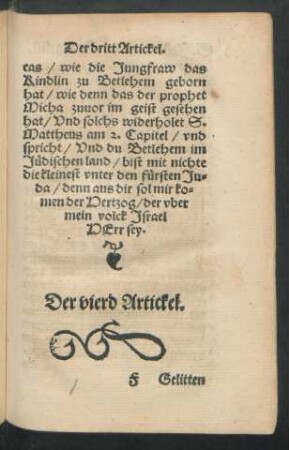 Der dritt Artickel.
cas / wie die Jungfraw das
Kindlin zu Betlehem geborn
hat / wie denn das der prophet
Micha zuuor im geist gesehen
hat / Vnd solchs widerholet S.
Mattheus am 2. Capitel / vnd
spricht / Vnd du Betlehem im
Jüdischen land / bist mit nichte
die kleinest vnter den fürsten Ju-
da / denn aus dir sol mir ko-
men der Hertzog / der vber
mein volck Israel
HErr sey.
Der vierd Artickel.
F Gelitten